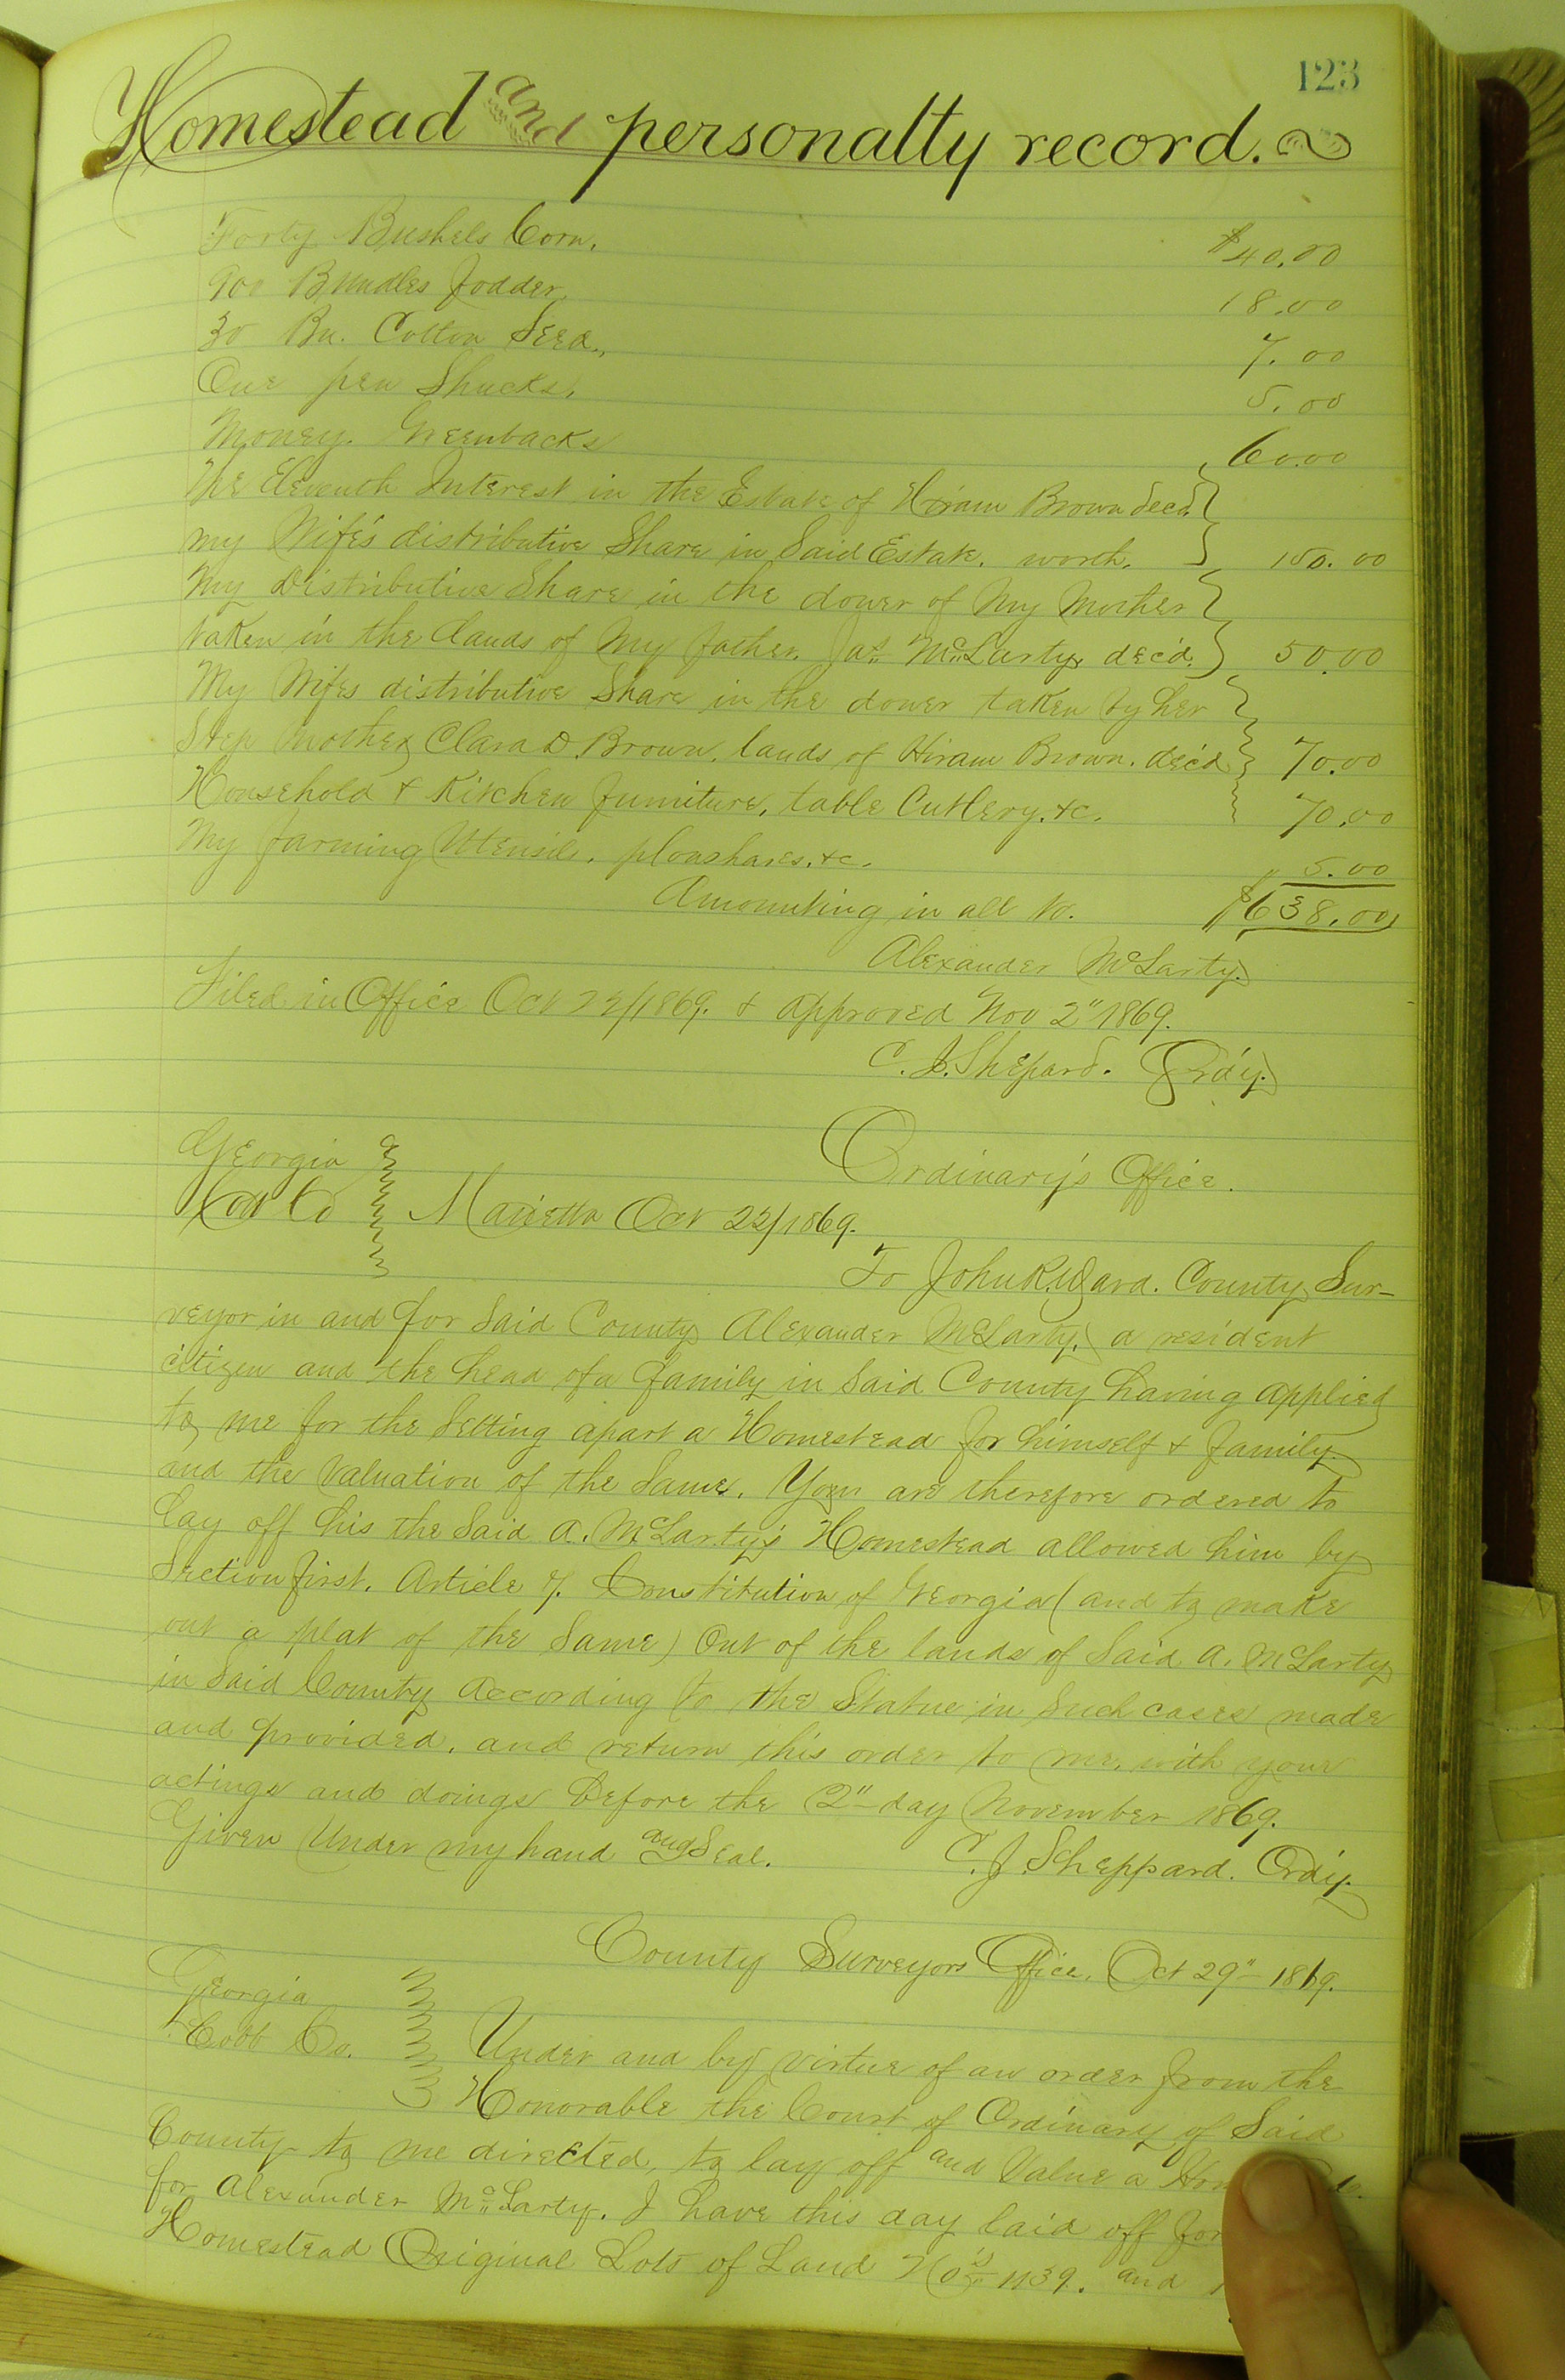 123
Homestead and personalty record.
Forty Bushels Corn. $40.00
900 Bundles Fodder, 18.00
30 Bu. Cotton Seed., 7.00
One pen Shucks. 5.00
Money. Greenbacks 60.00
The Eleventh Interest in the Estate of Hiram Brown decd.
my Wife's distributive Share in Said Estate. worth. 150.00
My Distributive Share in the dower of My Mother
taken in the lands of My father. Jas. McLarty, dec'd. 50.00
My Wifes distributive Share in the dower taken by her
Step Mother, Clara D. Brown. lands of Hiram Brown. dec'd 70.00
Household & Kitchen furniture, table Cutlery. &c. 70.00
My farming Utensils. ploushares. &c. 5.00
Amounting in all to. $638.00
Alexander McLarty.
Filed in Office Oct 22/1869. & approved Nov 2" 1869.
C. J. Shepard. Ord'y.
Georgia Ordinary's Office.
Cobb Co Marietta Oct 22/1869.
To John R. Ward. County Sur-
veyor in and for Said County Alexander McLarty, a resident
citizen and the head of a family in Said County having applied
to me for the Setting apart a Homestead for himself & family.
and the Valuation of the Same. You are therefore ordered to
lay off his the Said A. McLarty's Homestead allowed him by
Section first. Article 7. Constitution of Georgia (and to make
out a plat of the Same) Out of the lands of Said A. McLarty
in Said County According to the Statue in Such cases made
and provided. and return this order to me, with your
actings and doings before the 2" day November 1869.
Given Under my hand and Seal. C. J. Sheppard. Ord'y.
County Surveyors Office. Oct 29" 1869.
Georgia
Cobb Co. Under and by virtue of an order from the
Honorable the Court of Ordinary of Said
County to me directed, to lay off and Value a
for Alexander McLarty. I have this day laid off for
Homestead Original Lots of Land Nos 1139. and